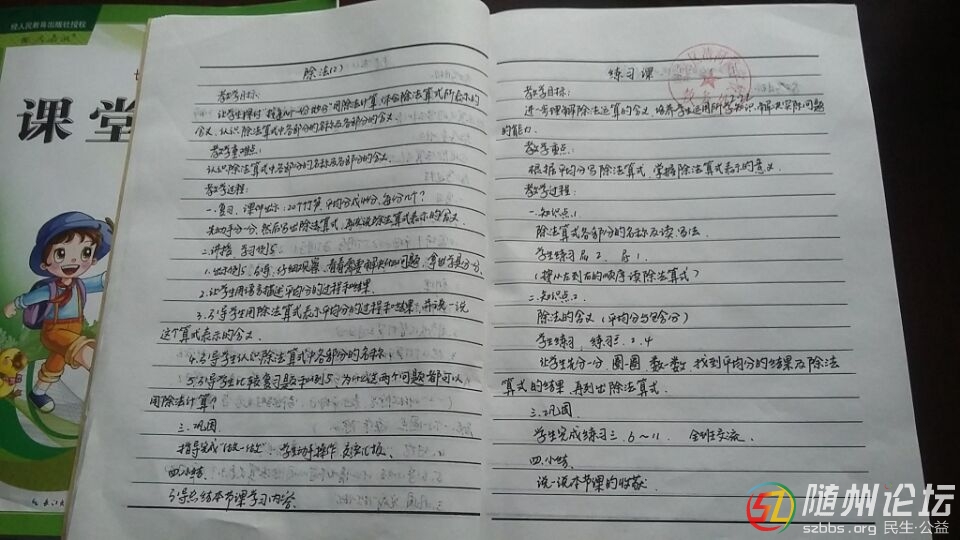 经人民教育出版社授权
课堂
除法(2)
教学目标:
让学生探讨“按每几个一份地分”用除法计算,体会除法算式所表示的
含义,认识除法算式中各部分的名称及各部分的含义。
教学重难点:
认识除法算式中各部分的名称及各部分的含义。
教学过程:
一.复习,课件出示:20个竹笋,平均分成4份,每份几个?
先动手分一分,然后写出除法算式,再来说说除法算式的含义
二.讲授,学习例5
1.出示例5,引导,仔细观察,看看需要解决什么问题,拿出学具分一分。
2.让学生用语言描述平均分的过程和结果。
3.引导学生用除法算式表示平均分的过程和结果,并说一说
这个算式表示的含义。
4.引导学生认识除法算式中各部分的名称。
5.引导学生比较复习题和例5,为什么这两个问题都可以
用除法计算?
三.巩固
指导完成“做一做” 学生动手操作 交流汇报。
四.小结
引导总结本节课学习内容。
练习课
教学目标:
进一步理解除法运算的含义,培养学生运用所学知识,解决实际问题
的能力。
教学重点:
根据平均分写除法算式,掌握除法算式表示的意义
教学过程:
一.知识点1
除法算式各部分的名称及读、写法
学生练习
(按从左到右的顺序读除法算式)
二.知识点2
除法的含义(平均分与包含分)
学生练习,练习三 2.4
让学生先分一分 圈一圈 数一数,找到平均分的结果及除法
算式的结果,再列出除法算式。
三.巩固
学生完成练习三.6~11. 全班交流
四.小结
说一说本节课的收获
随州论坛
szbbs.org 民生·公益